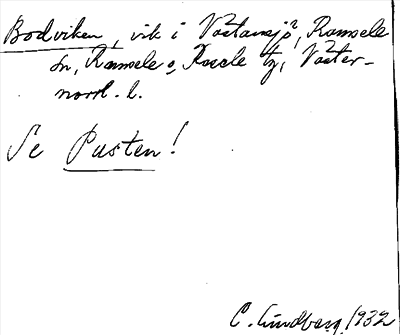 Bodviken, vik i Västansjö, Ramsele
sn, Ramsele o. Resele tg, Väster-
norrl. l.
Se Pusten!
C. Lindberg 1932